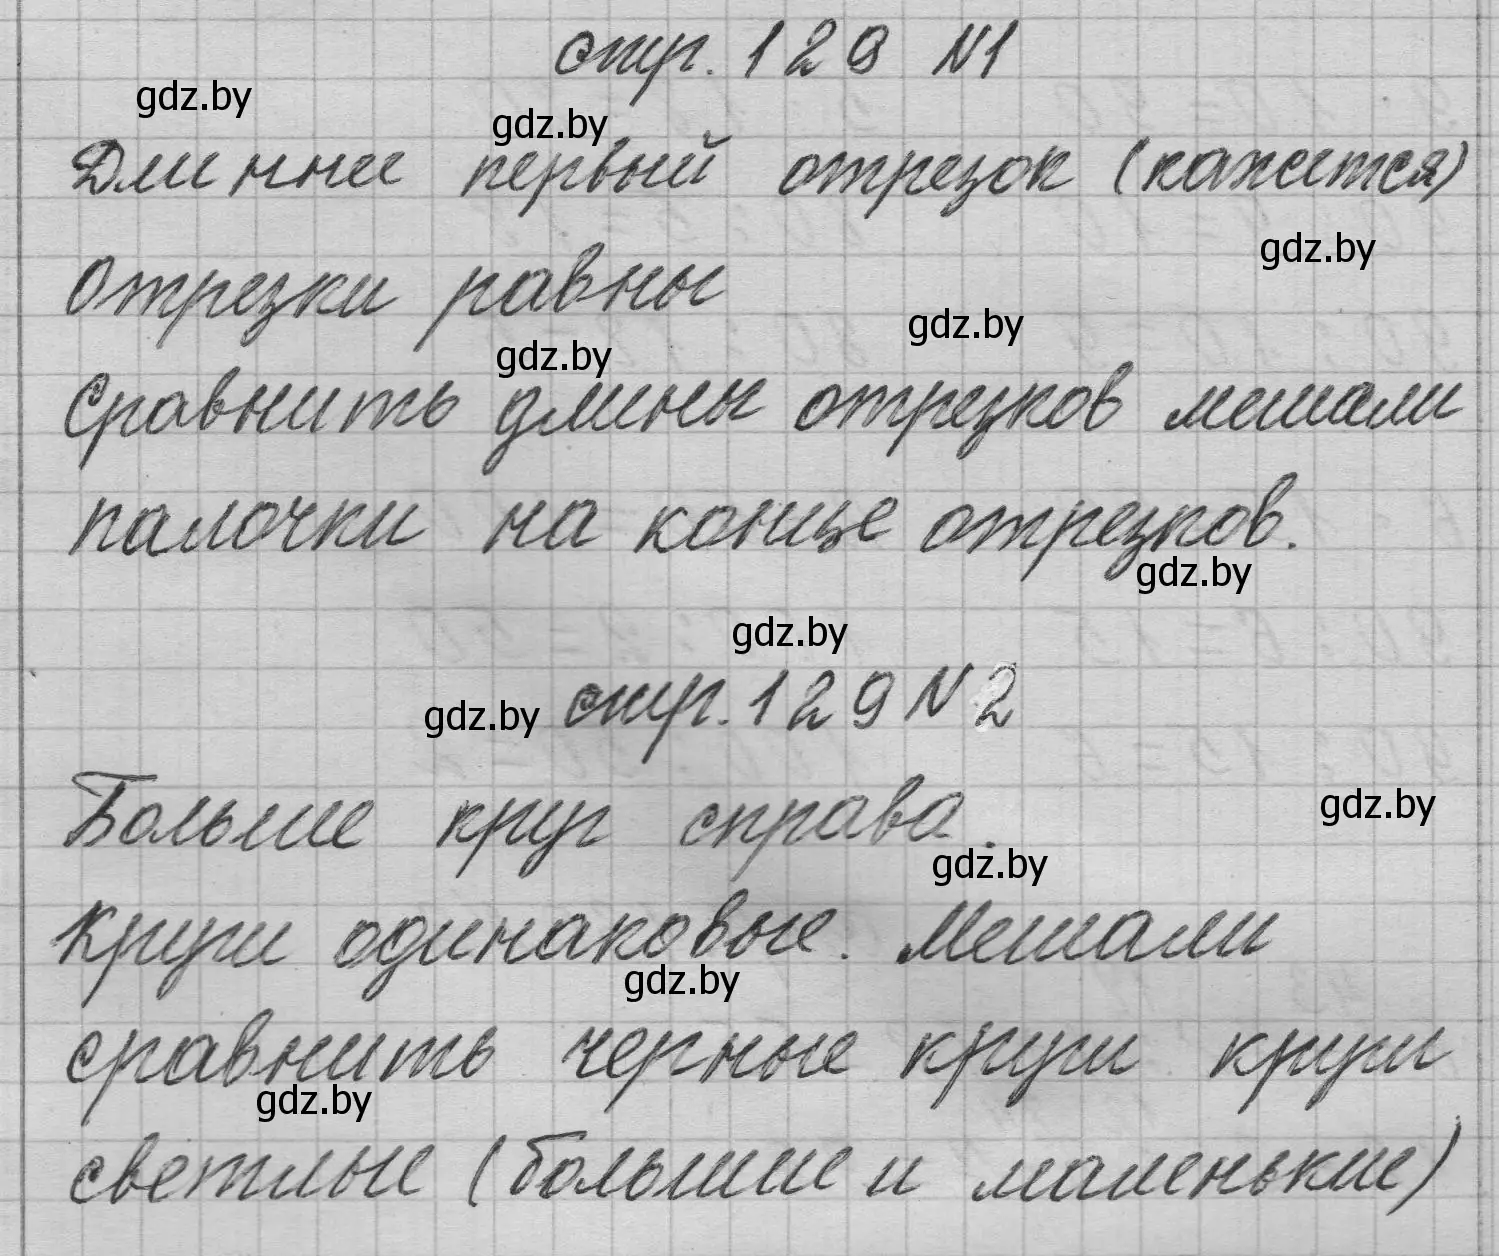 стр. 129 N1
gdz.by
gdz.by
Длиннее первый отрезок (кажется)
gdz.by
Отрезки равны
gdz.by
gdz.by
Сравнить длины отрезков мешали
палочки на конце отрезков.
gdz.by
gdz.by
gdz.by стр. 129 N 2
Больше круг справа.
gdz.by
gdz.by
Круги одинаковые. Мешали
gdz.by
сравнить черные круги круги
gdz.by
светлые (большие и маленькие)